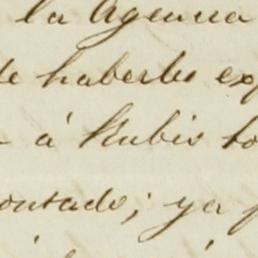 la Agencia
de haberles exp
á Rubio to
contado; ya p